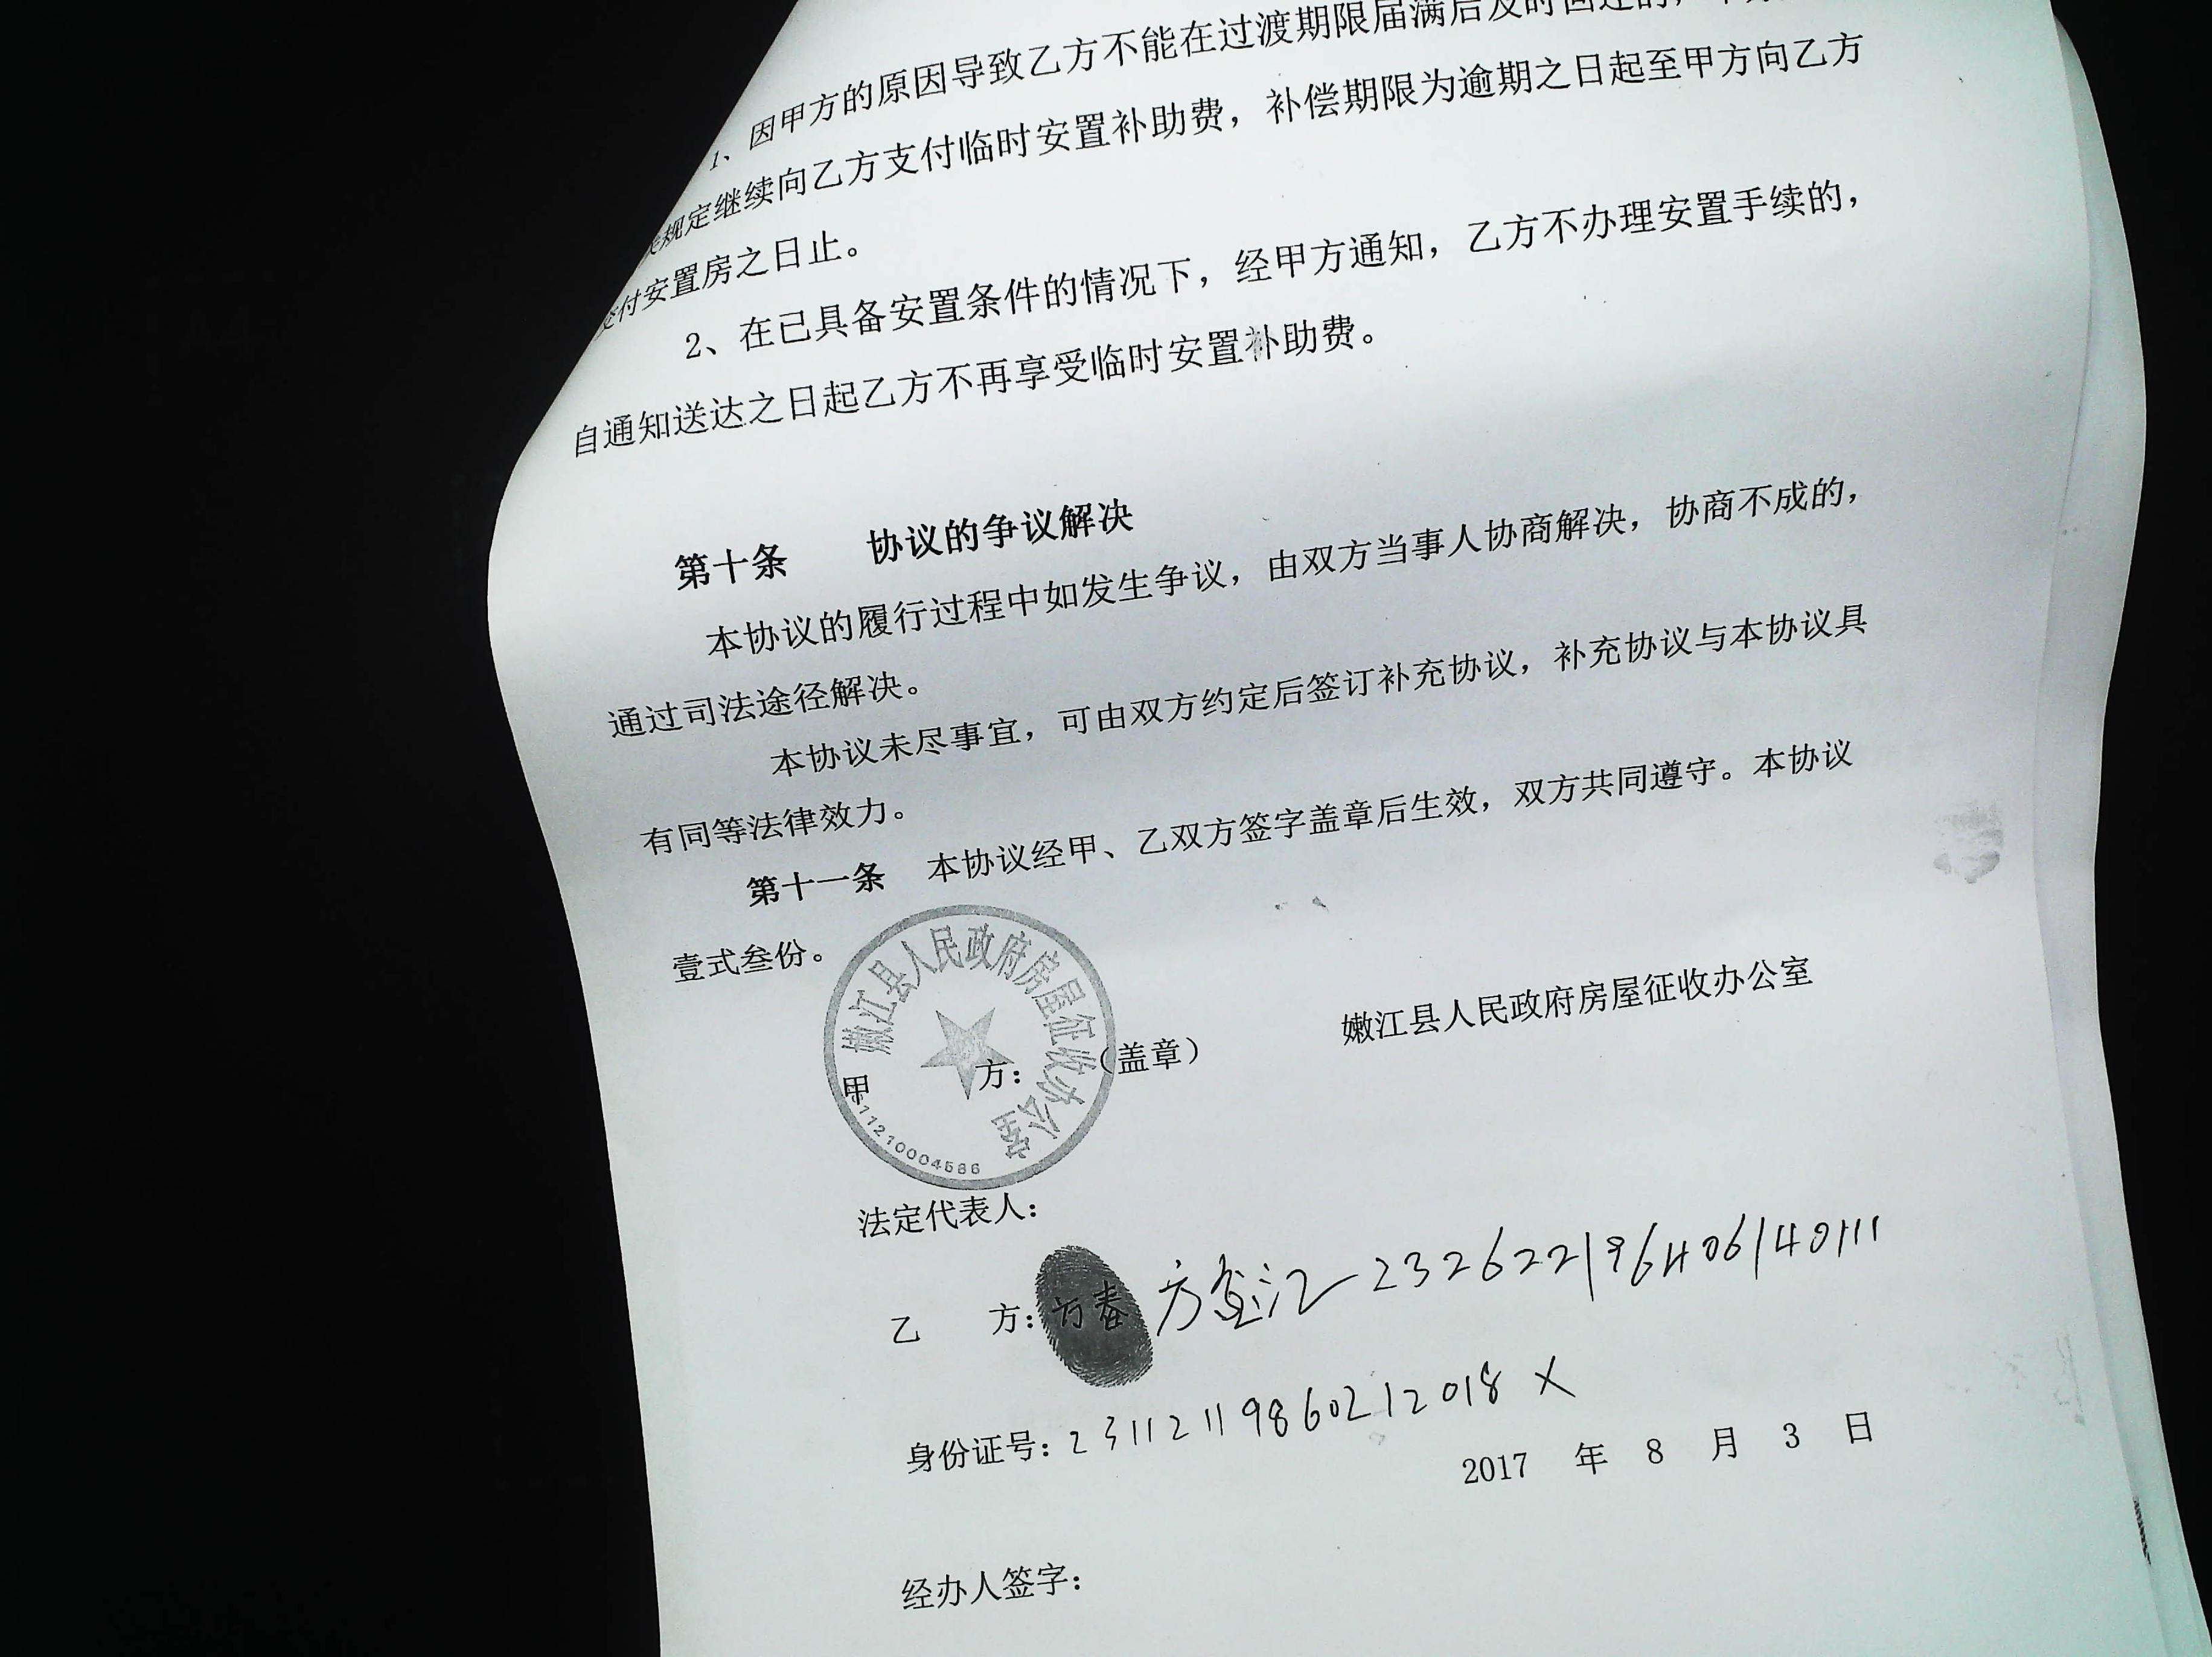 1、因甲方的原因导致乙方不能在过渡期限届满后及时回迁的，
规定继续向乙方支付临时安置补助费，补偿期限为逾期之日起至甲方向乙方
交付安置房之日止。
2、在已具备安置条件的情况下，经甲方通知，乙方不办理安置手续的，
自通知送达之日起乙方不再享受临时安置补助费。
第十条 协议的争议解决
本协议的履行过程中如发生争议，由双方当事人协商解决，协商不成的，
通过司法途径解决。
本协议未尽事宜，可由双方约定后签订补充协议，补充协议与本协议具
有同等法律效力。
第十一条 本协议经甲、乙双方签字盖章后生效，双方共同遵守。本协议
壹式叁份。
嫩江县人民政府房屋征收办公室
甲 方：（盖章） 嫩江县人民政府房屋征收办公室
法定代表人：
乙 方：方春 方 232622196406140111
身份证号：23112119860212018X
2017 年 8 月 3 日
经办人签字：